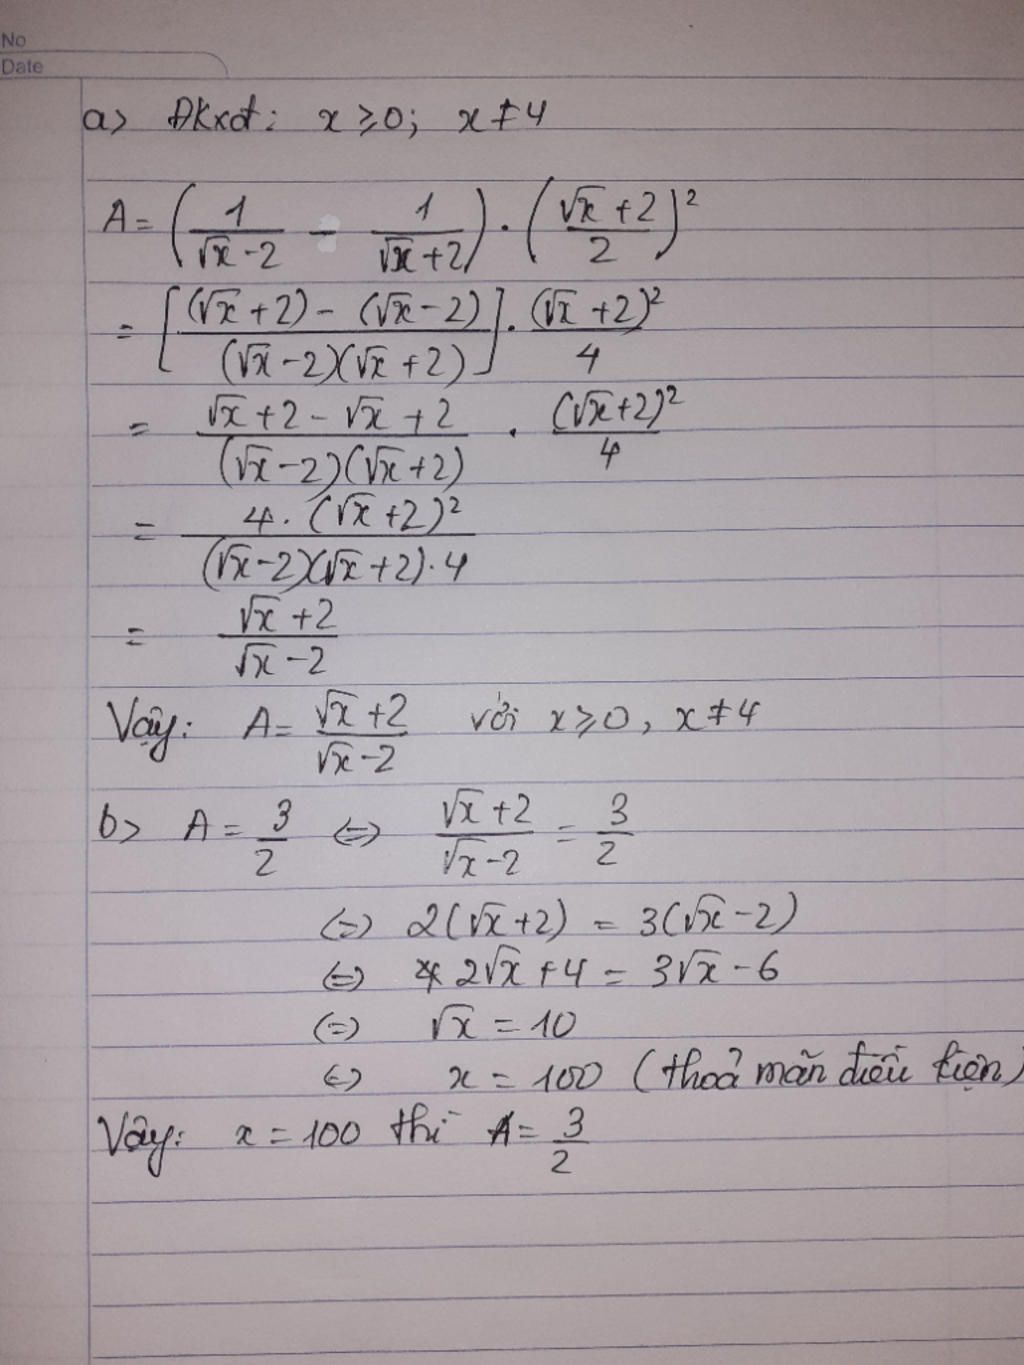 No
Date
a> Đkxđ: x ≥ 0; x ≠ 4
A = (1/(√x - 2) - 1/(√x + 2)) . ((√x + 2)/2)²
= [((√x + 2) - (√x - 2))/((√x - 2)(√x + 2))] . (√x + 2)²/4
= (√x + 2 - √x + 2)/((√x - 2)(√x + 2)) . (√x + 2)²/4
= (4 . (√x + 2)²)/((√x - 2)(√x + 2) . 4)
= (√x + 2)/(√x - 2)
Vậy: A = (√x + 2)/(√x - 2) với x ≥ 0, x ≠ 4
b> A = 3/2 <=> (√x + 2)/(√x - 2) = 3/2
<=> 2(√x + 2) = 3(√x - 2)
<=> 2√x + 4 = 3√x - 6
<=> √x = 10
<=> x = 100 (thoả mãn điều kiện)
Vậy: x = 100 thì A = 3/2